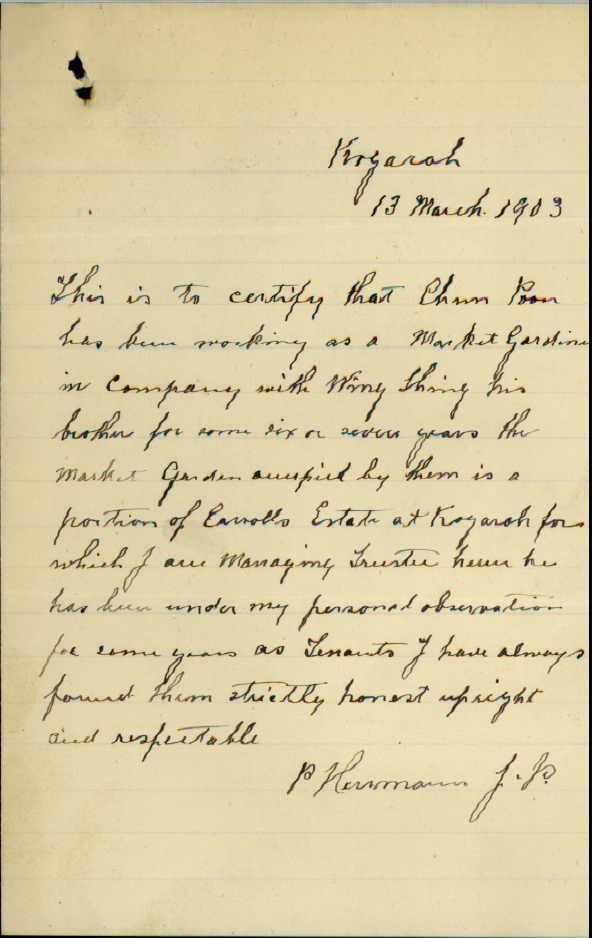 Kogarah
13 March. 1903
This is to certify that Chun Poon
has been working as a Market Gardine
in Company with Wing Shing his
brother for some six or seven years the
Market Garden occupied by them is a
portion of Carrolls Estate at Kogarah for
which I am Managing Trustee hence he
has been under my personal observation
for some years as Tenants I have always
found them strictly honest upright
and respectable
P Herrmann J.P.